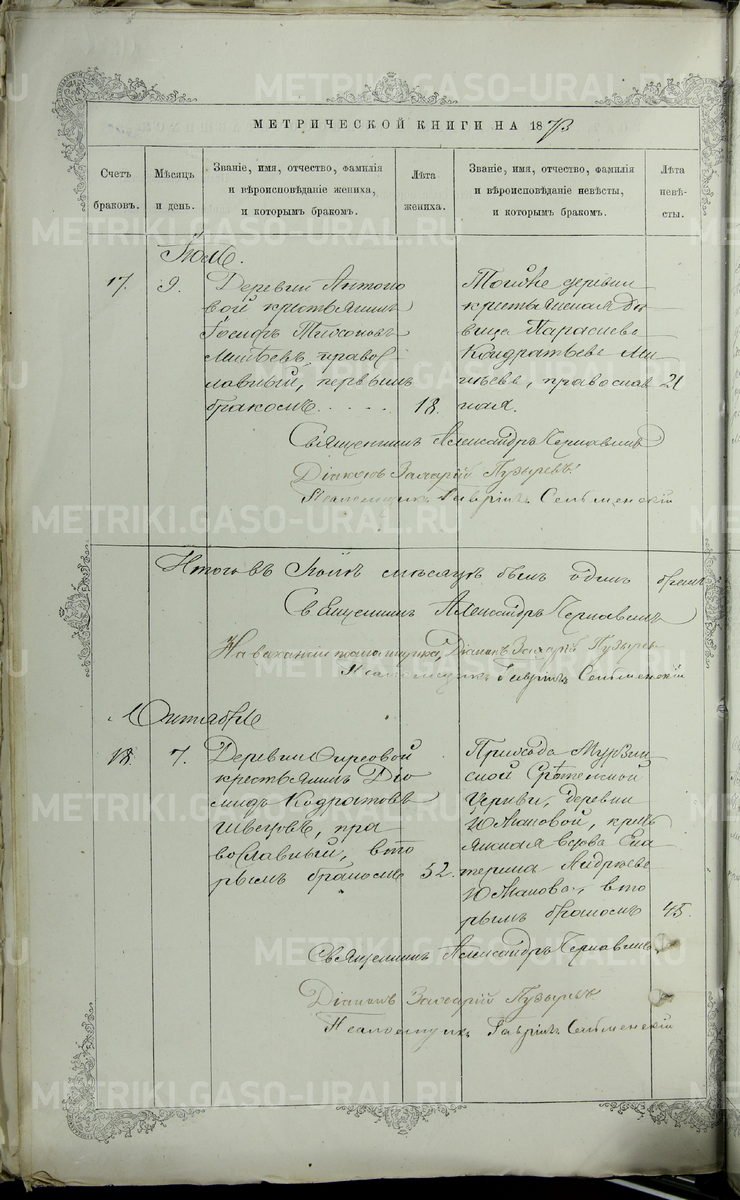 МЕТРИЧЕСКОЙ КНИГИ НА 1873
Счетъ браковъ.
Мѣсяцъ и день.
Званіе, имя, отчество, фамилія
и вѣроисповѣданіе жениха,
и которымъ бракомъ.
Лѣта жениха.
Званіе, имя, отчество, фамилія
и вѣроисповѣданіе невѣсты,
и которымъ бракомъ.
Лѣта невѣсты.
17. 9.
Деревни Антоно
вой крестьянинъ
Іосифъ Тихоновъ
православный, первымъ
бракомъ. . . . . 18.
Тойже деревни
крестьянская дѣ
вица Параскева
Кондратьева
православ 21
ная.
Священникъ Александръ Чернавинъ
Діаконъ Захарій Пузыревъ
Псаломщикъ Гавріилъ Сельменскій
Итого въ Іюлѣ мѣсяцѣ былъ одинъ бракъ
Священникъ Александръ Чернавинъ
На вакансіи псаломщика, Діаконъ Захарій Пузыревъ
Псаломщикъ Гавріилъ Сельменскій
Октябрь
18. 7.
Деревни
крестьянинъ Діо
мидъ Кодратовъ
Швецовъ, пра
вославный, вто
рымъ бракомъ 52.
Прихода Мурзин
ской Срѣтенской
Церкви, деревни
Южаковой, кресть
янская вдова Ека
терина Андреева
Южакова, вто
рымъ бракомъ 45.
Священникъ Александръ Чернавинъ
Діаконъ Захарій Пузыревъ
Псаломщикъ Гавріилъ Сельменскій
METRIKI.GASO-URAL.RU